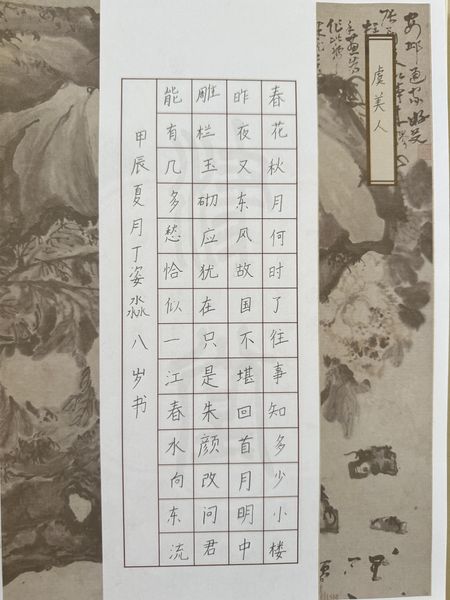 虞美人
春花秋月何时了往事知多少小楼
昨夜又东风故国不堪回首月明中
雕栏玉砌应犹在只是朱颜改问君
能有几多愁恰似一江春水向东流
甲辰夏月丁姿淼八岁书